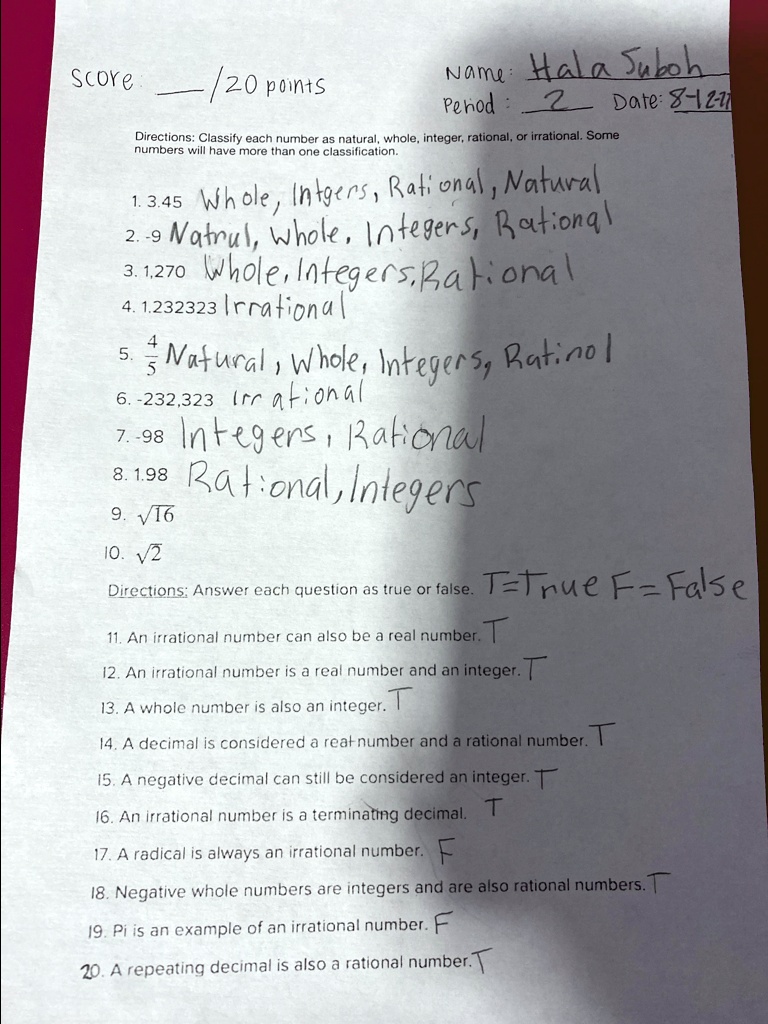 Score: __/20 points
Name: Hala Suboh
Period: 2 Date: 8-12-21
Directions: Classify each number as natural, whole, integer, rational, or irrational. Some
numbers will have more than one classification.
1. 3.45 Whole, Intgers, Rational, Natural
2. -9 Natrul, Whole, Integers, Rational
3. 1,270 Whole, Integers, Rational
4. 1.232323 Irrational
5. 4/5 Natural, Whole, Integers, Ratinol
6. -232,323 Irrational
7. -98 Integers, Rational
8. 1.98 Rational, Integers
9. √16
10. √2
Directions: Answer each question as true or false. T=True F=False
11. An irrational number can also be a real number. T
12. An irrational number is a real number and an integer. T
13. A whole number is also an integer. T
14. A decimal is considered a real number and a rational number. T
15. A negative decimal can still be considered an integer. T
16. An irrational number is a terminating decimal. T
17. A radical is always an irrational number. F
18. Negative whole numbers are integers and are also rational numbers. T
19. Pi is an example of an irrational number. F
20. A repeating decimal is also a rational number. T